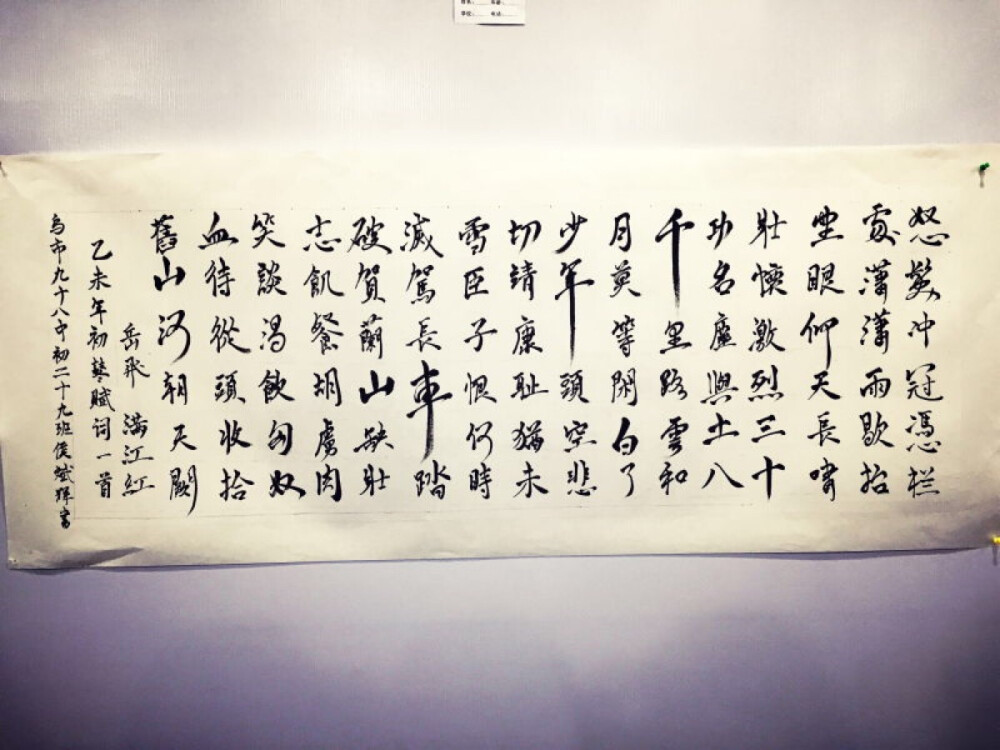 怒髮冲冠憑栏
處瀟瀟雨歇抬
望眼仰天長嘯
壯懷激烈三十
功名塵與土八
千里路雲和
月莫等閑白了
少年頭空悲
切靖康耻猶未
雪臣子恨何時
滅駕長車踏
破賀蘭山缺壯
志飢餐胡虜肉
笑談渴飲匈奴
血待從頭收拾
舊山河朝天闕
岳飛 滿江紅
乙未年初賦詞一首
乌市九十八中初二十九班侯斌輝書